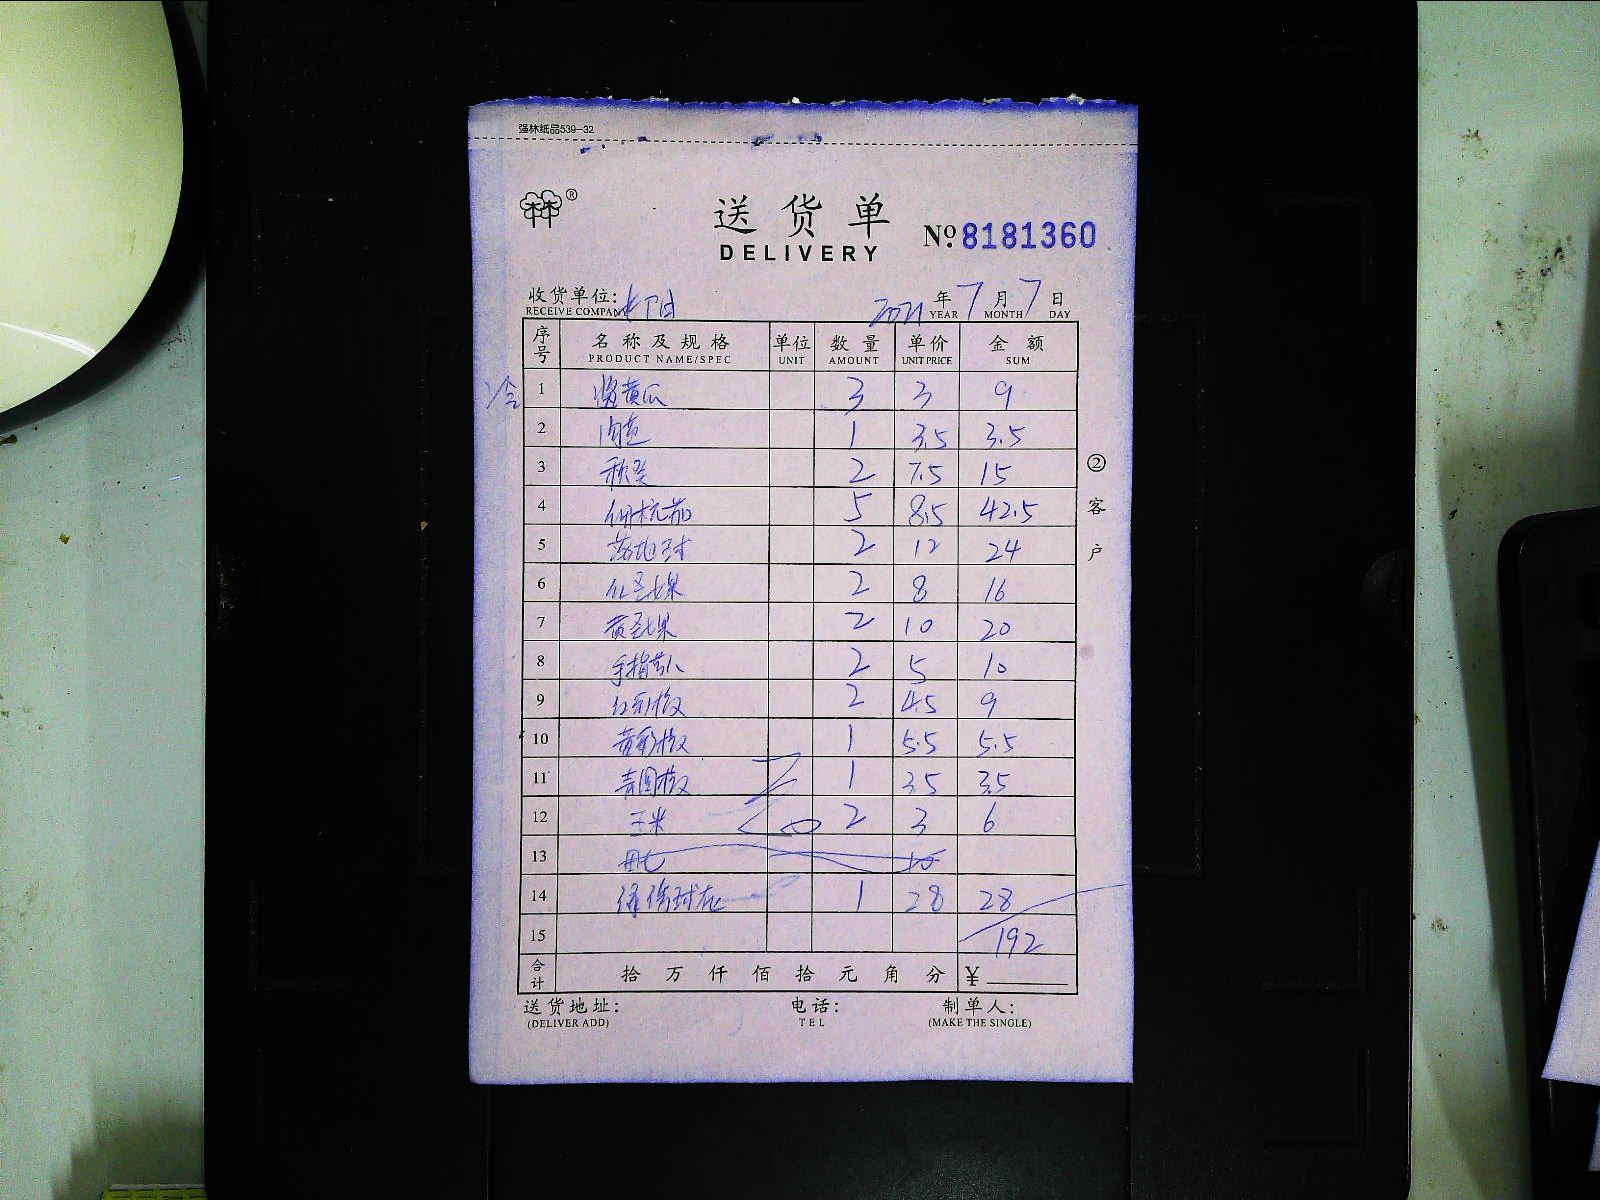 强林纸品539-32
林 ®
送货单
DELIVERY
№ 8181360
收货单位:
RECEIVE COMPANY
2021 年 7 月 7 日
YEAR MONTH DAY
序号 名称及规格 单位 数量 单价 金额
PRODUCT NAME/SPEC UNIT AMOUNT UNIT PRICE SUM
冷
1 黄瓜 3 3 9
2 1 3.5 3.5
3 秋葵 2 7.5 15
4 5 8.5 42.5
5 2 12 24
6 红圣女果 2 8 16
7 黄圣女果 2 10 20
8 手指 2 5 10
9 红彩椒 2 4.5 9
10 黄彩椒 1 5.5 5.5
11 青圆椒 1 3.5 3.5
12 玉米 2 3 6
13
14 1 28 28
15 192
合计 拾万仟佰拾元角分 ¥
送货地址: 电话: 制单人:
(DELIVER ADD) TEL (MAKE THE SINGLE)
②客户